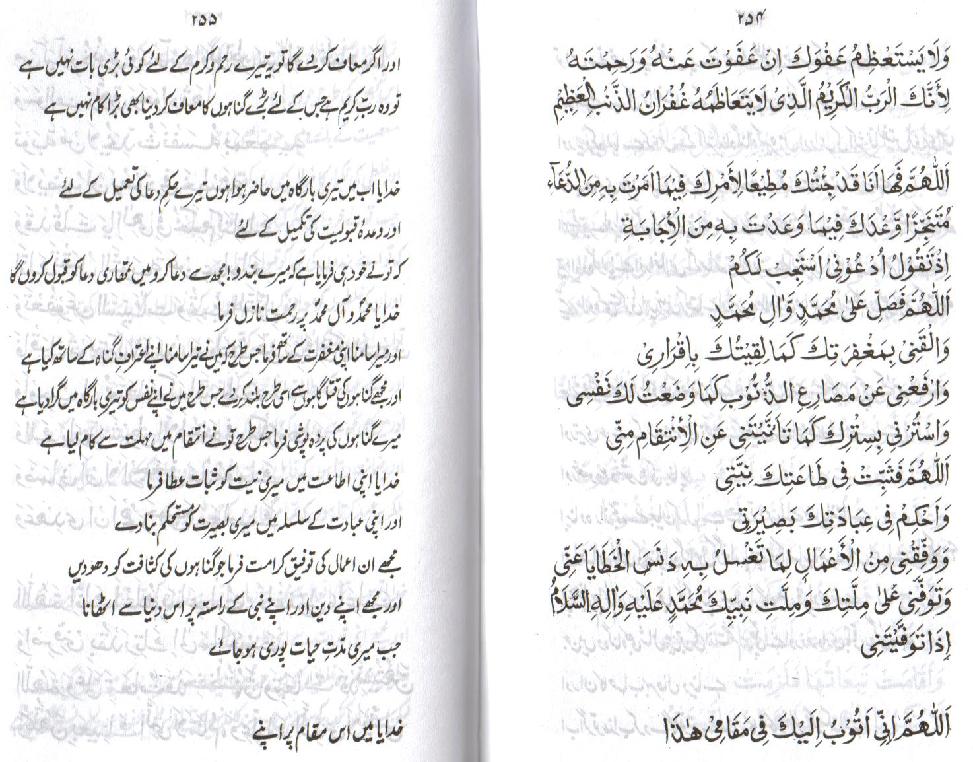 ۲۵۴
وَلَا يَسْتَعْظِمُ عَفْوَكَ اِنْ عَفَوْتَ عَنْهُ وَرَحِمْتَهُ
لِاَنَّكَ الرَّبُّ الْكَرِيْمُ الَّذِىْ لَا يَتَعَاظَمُهُ غُفْرَانُ الذَّنْبِ الْعَظِيْمِ
اَللّٰهُمَّ فَهَا اَنَا قَدْ جِئْتُكَ مُطِيْعًا لِاَمْرِكَ فِيْمَا اَمَرْتَ بِهٖ مِنَ الدُّعَآءِ
مُتَنَجِّزًا وَّعْدَكَ فِيْمَا وَعَدْتَ بِهٖ مِنَ الْاِجَابَةِ
اِذْ تَقُوْلُ اُدْعُوْنِىْ اَسْتَجِبْ لَكُمْ
اَللّٰهُمَّ فَصَلِّ عَلٰى مُحَمَّدٍ وَّاٰلِ مُحَمَّدٍ
وَالْقَنِىْ بِمَغْفِرَتِكَ كَمَا لَقِيْتُكَ بِاِقْرَارِىْ
وَارْفَعْنِىْ عَنْ مَصَارِعِ الذُّنُوْبِ كَمَا وَضَعْتُ لَكَ نَفْسِىْ
وَاسْتُرْنِىْ بِسِتْرِكَ كَمَا تَاَنَّيْتَنِىْ عَنِ الْاِنْتِقَامِ مِنِّىْ
اَللّٰهُمَّ فَثَبِّتْ فِىْ طَاعَتِكَ نِيَّتِىْ
وَاَحْكِمْ فِىْ عِبَادَتِكَ بَصِيْرَتِىْ
وَوَفِّقْنِىْ مِنَ الْاَعْمَالِ لِمَا تَغْسِلُ بِهٖ دَنَسَ الْخَطَايَا عَنِّىْ
وَتَوَفَّنِىْ عَلٰى مِلَّتِكَ وَمِلَّتِ نَبِيِّكَ مُحَمَّدٍ عَلَيْهِ وَاٰلِهِ السَّلَامُ
اِذَا تَوَفَّيْتَنِىْ
اَللّٰهُمَّ اِنِّىْ اَتُوْبُ اِلَيْكَ فِىْ مَقَامِىْ هٰذَا
۲۵۵
اور اگر معاف کردے گا تو یہ تیرے رحم و کرم کے لئے کوئی بڑی بات نہیں ہے
تو وہ ربِ کریم ہے جس کے لئے بڑے گناہوں کا معاف کردینا بھی بڑا کام نہیں ہے
خدایا اب میں تیری بارگاہ میں حاضر ہوا ہوں تیرے حکمِ دعا کی تعمیل کے لئے
اور وعدۂ قبولیت کی تکمیل کے لئے
کہ تو نے خود ہی فرمایا ہے کہ میرے بندو مجھ سے دعا کرو میں تمھاری دعا کو قبول کروں گا
خدایا محمدؐ و آلِ محمدؐ پر رحمت نازل فرما
اور میرا سامنا اپنی مغفرت کے ساتھ فرما جس طرح کہ میں نے تیرا سامنا اپنے اعترافِ گناہ کے ساتھ کیا ہے
اور مجھے گناہوں کی قتل گاہوں سے اسی طرح بلند کردے جس طرح میں نے اپنے نفس کو تیری بارگاہ میں گرا دیا ہے
میرے گناہوں کی پردہ پوشی فرما جس طرح تو نے انتقام میں مہلت سے کام لیا ہے
خدایا اپنی اطاعت میں میری نیت کو ثبات عطا فرما
اور اپنی عبادت کے سلسلہ میں میری بصیرت کو مستحکم بنا دے
مجھے ان اعمال کی توفیق کرامت فرما جو گناہوں کی کثافت کو دھو دیں
اور مجھے اپنے دین اور اپنے نبی کے راستہ پر اس دنیا سے اٹھانا
جب میری مدتِ حیات پوری ہوجائے
خدایا میں اس مقام پر اپنے